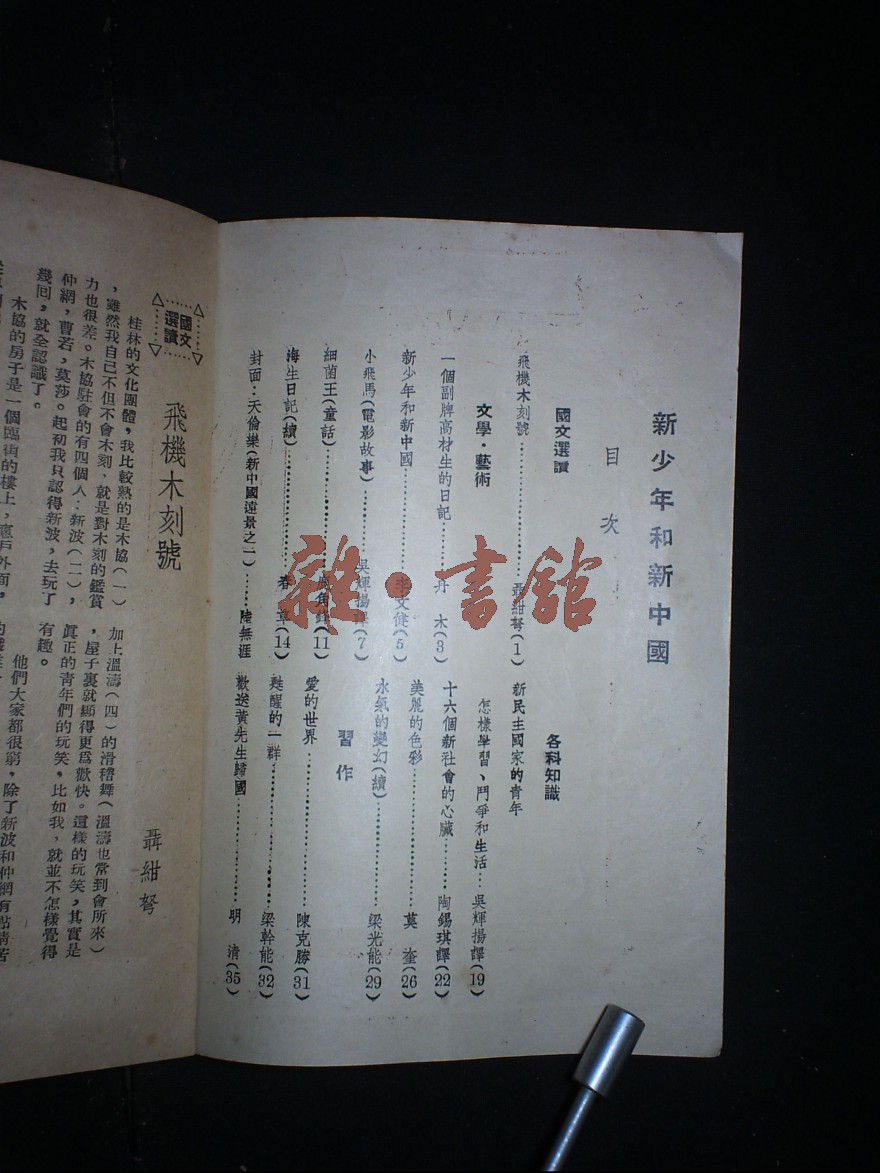 新少年和新中國
目次
國文選讀
飛機木刻號……聶紺弩(1)
文學·藝術
一個副牌高材生的日記……丹木(3)
新少年和新中國……李文健(5)
小飛馬(電影故事)……吳輝揚譯(7)
細菌王(童話)……(11)
海生日記(續)……春草(14)
封面:天倫樂(新中國遠景之一)……陸無涯
各科知識
新民主國家的青年
怎樣學習、鬥爭和生活…吳輝揚譯(19)
十六個新社會的心臟……陶錫琪譯(22)
美麗的色彩……莫奎(26)
水氣的變幻(續)……梁光能(29)
習作
愛的世界……陳克勝(31)
甦醒的一群……梁幹能(32)
歡送黃先生歸國……明清(35)
雜·書館
國文選讀
飛機木刻號
聶紺弩
桂林的文化團體,我比較熟的是木協(一)
,雖然我自己不但不會木刻,就是對木刻的鑑賞
力也很差。木協駐會的有四個人:新波(二),
仲綱,曹若,莫莎。起初我只認得新波,去玩了
幾回,就全認識了。
木協的房子是一個臨街的樓上,窗戶外面,
加上溫濤(四)的滑稽舞(溫濤也常到會所來)
,屋子裏就顯得更爲歡快。這樣的玩笑,其實是
眞正的靑年們的玩笑,比如我,就並不怎樣覺得
有趣。
他們大家都很窮,除了新波和仲綱有點